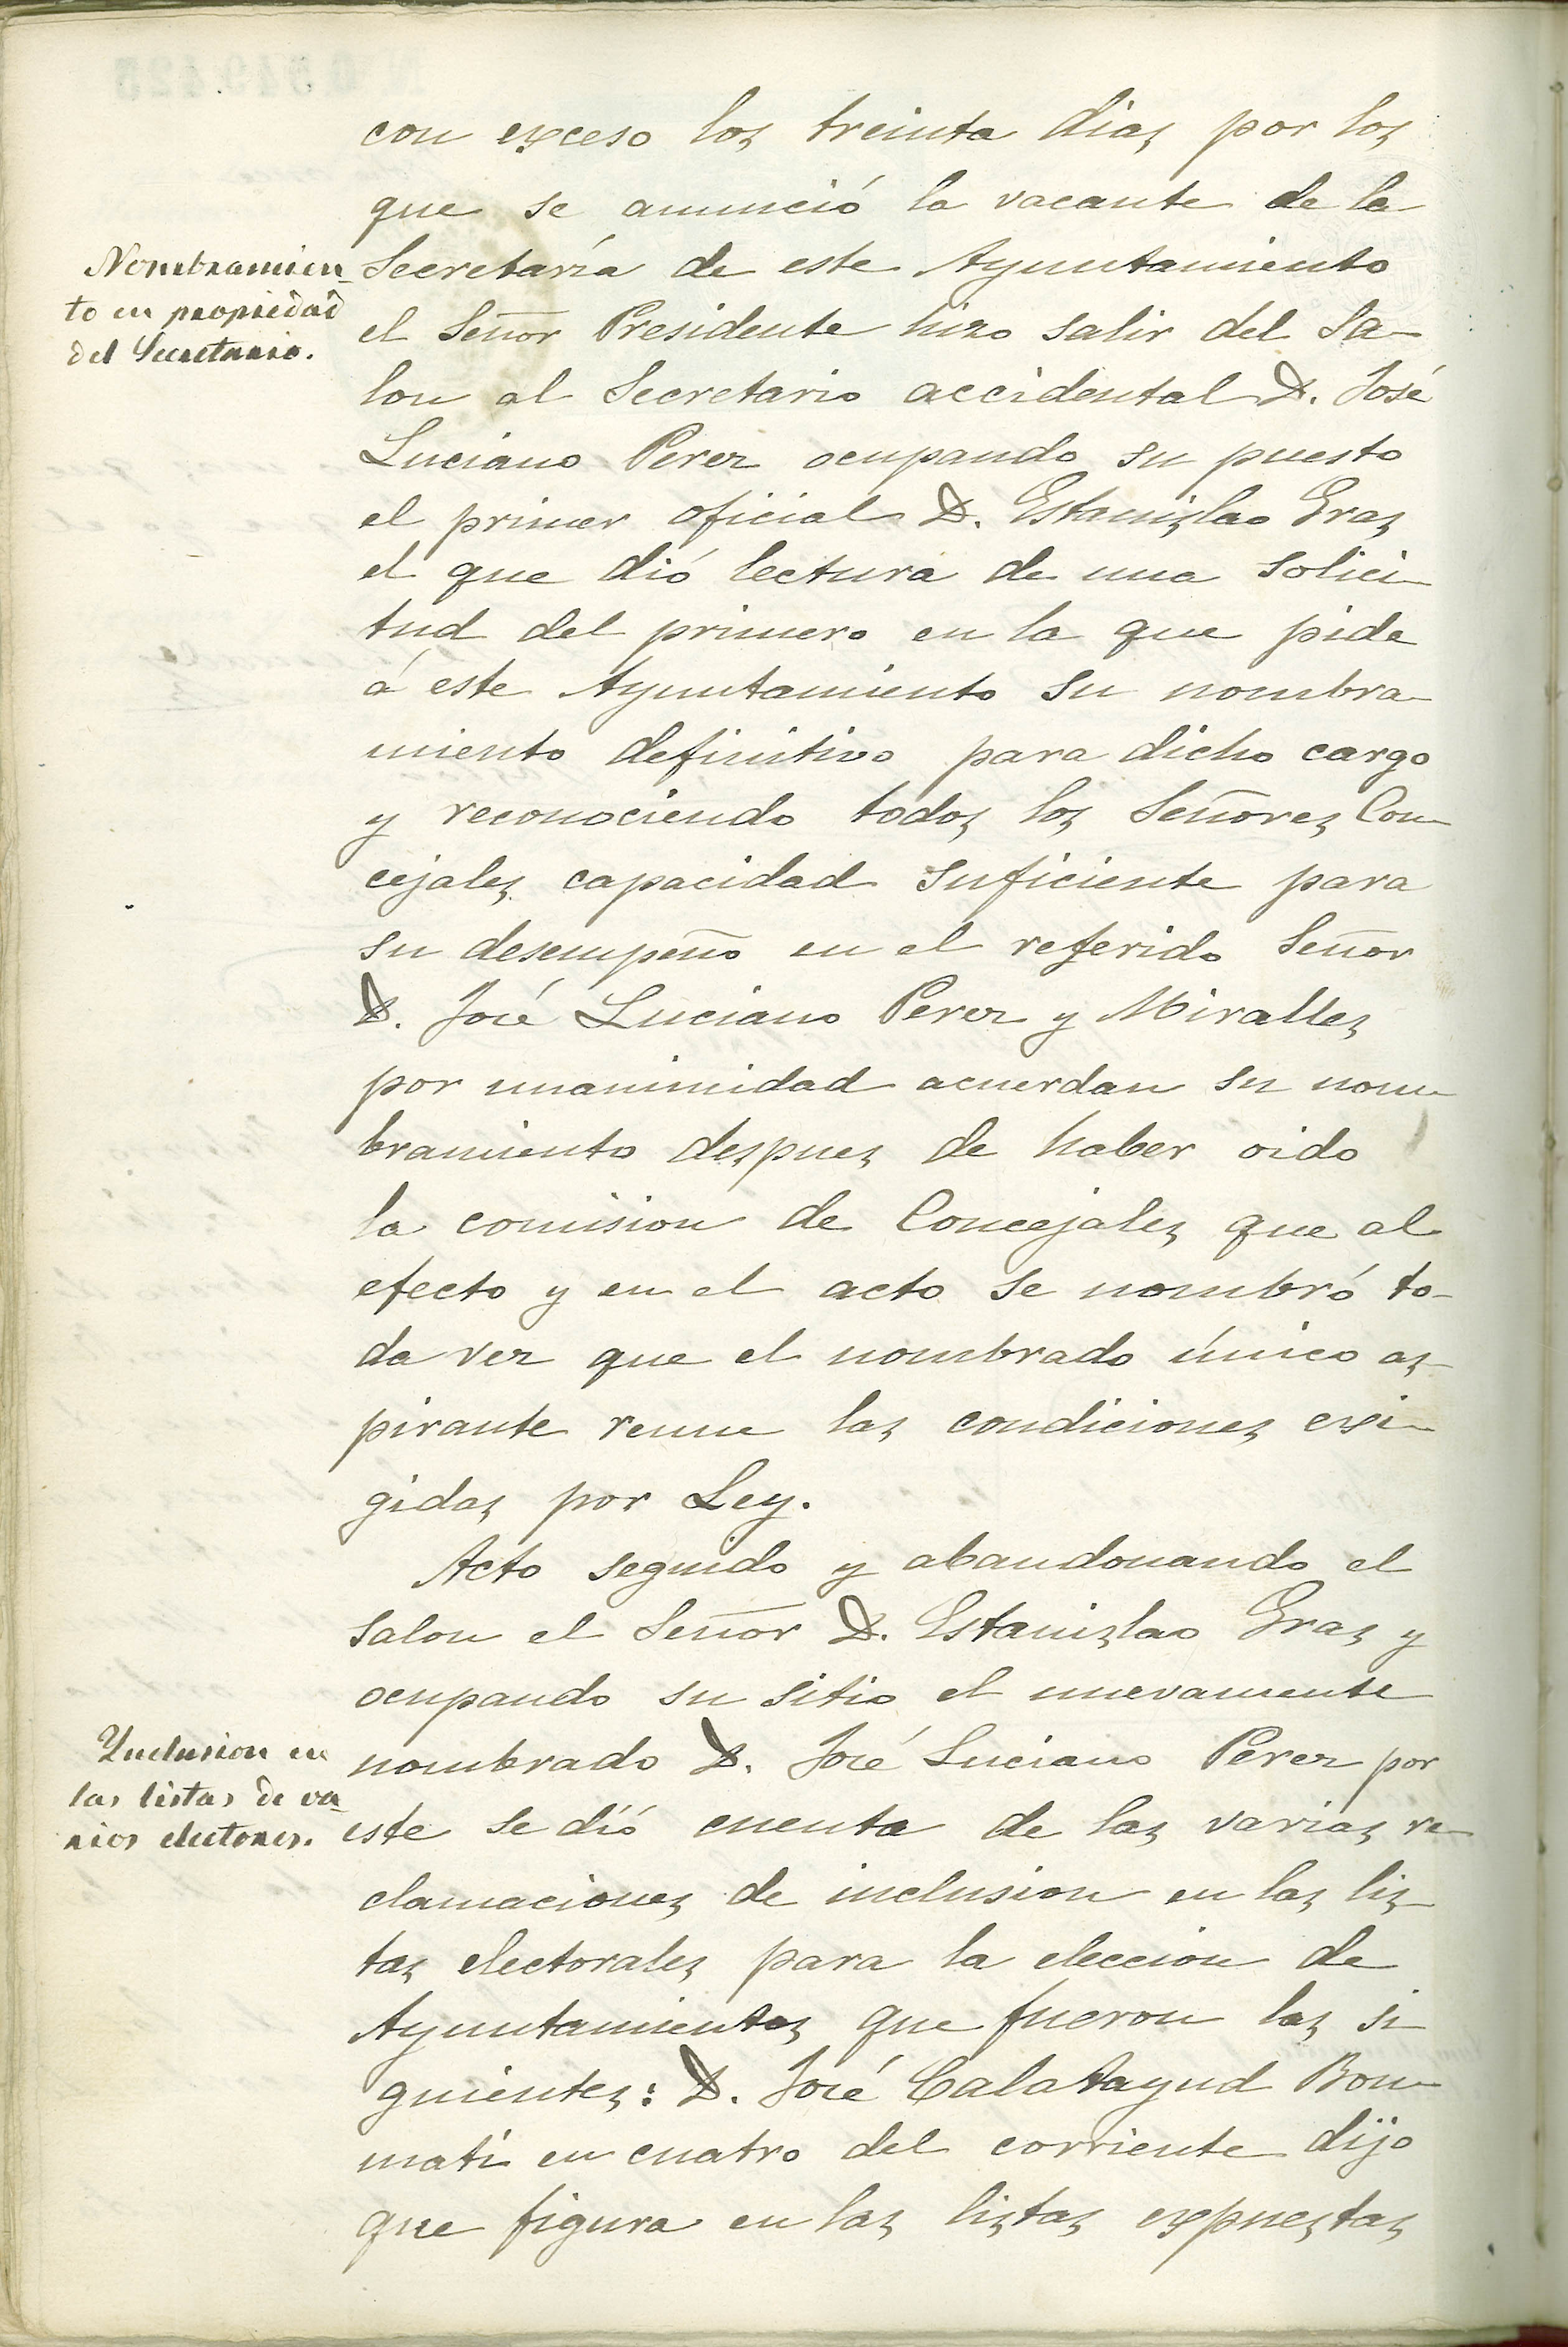 con exceso los treinta dias por los
que se anunció la vacante de la
Nombramien-
to en propiedad
del Secretario.
Secretaría de este Ayuntamiento
el Señor Presidente hizo salir del Sa-
lon al Secretario accidental D. José
Luciano Perez ocupando su puesto
el primer oficial D. Estanislao Gras
el que dió lectura de una solici-
tud del primero en la que pide
á este Ayuntamiento su nombra-
miento definitivo para dicho cargo
y reconociendo todos los Señores Con-
cejales capacidad suficiente para
su desempeño en el referido Señor
D. José Luciano Perez y Miralles
por unanimidad acuerdan su nom-
bramiento despues de haber oido
la comision de Concejales que al
efecto y en el acto se nombró to-
da vez que el nombrado único as-
pirante reune las condiciones exi-
gidas por Ley.
Acto seguido y abandonando el
salon el Señor D. Estanislao Gras y
ocupando su sitio el nuevamente
Ynclusion en
las listas de va-
rios electores.
nombrado D. José Luciano Perez por
este se dió cuenta de las varias re-
clamaciones de inclusion en las lis-
tas electorales para la eleccion de
Ayuntamientos que fueron las si-
guientes: D. José Calatayud Bon-
matí en cuatro del corriente dijo
que figura en las listas expuestas